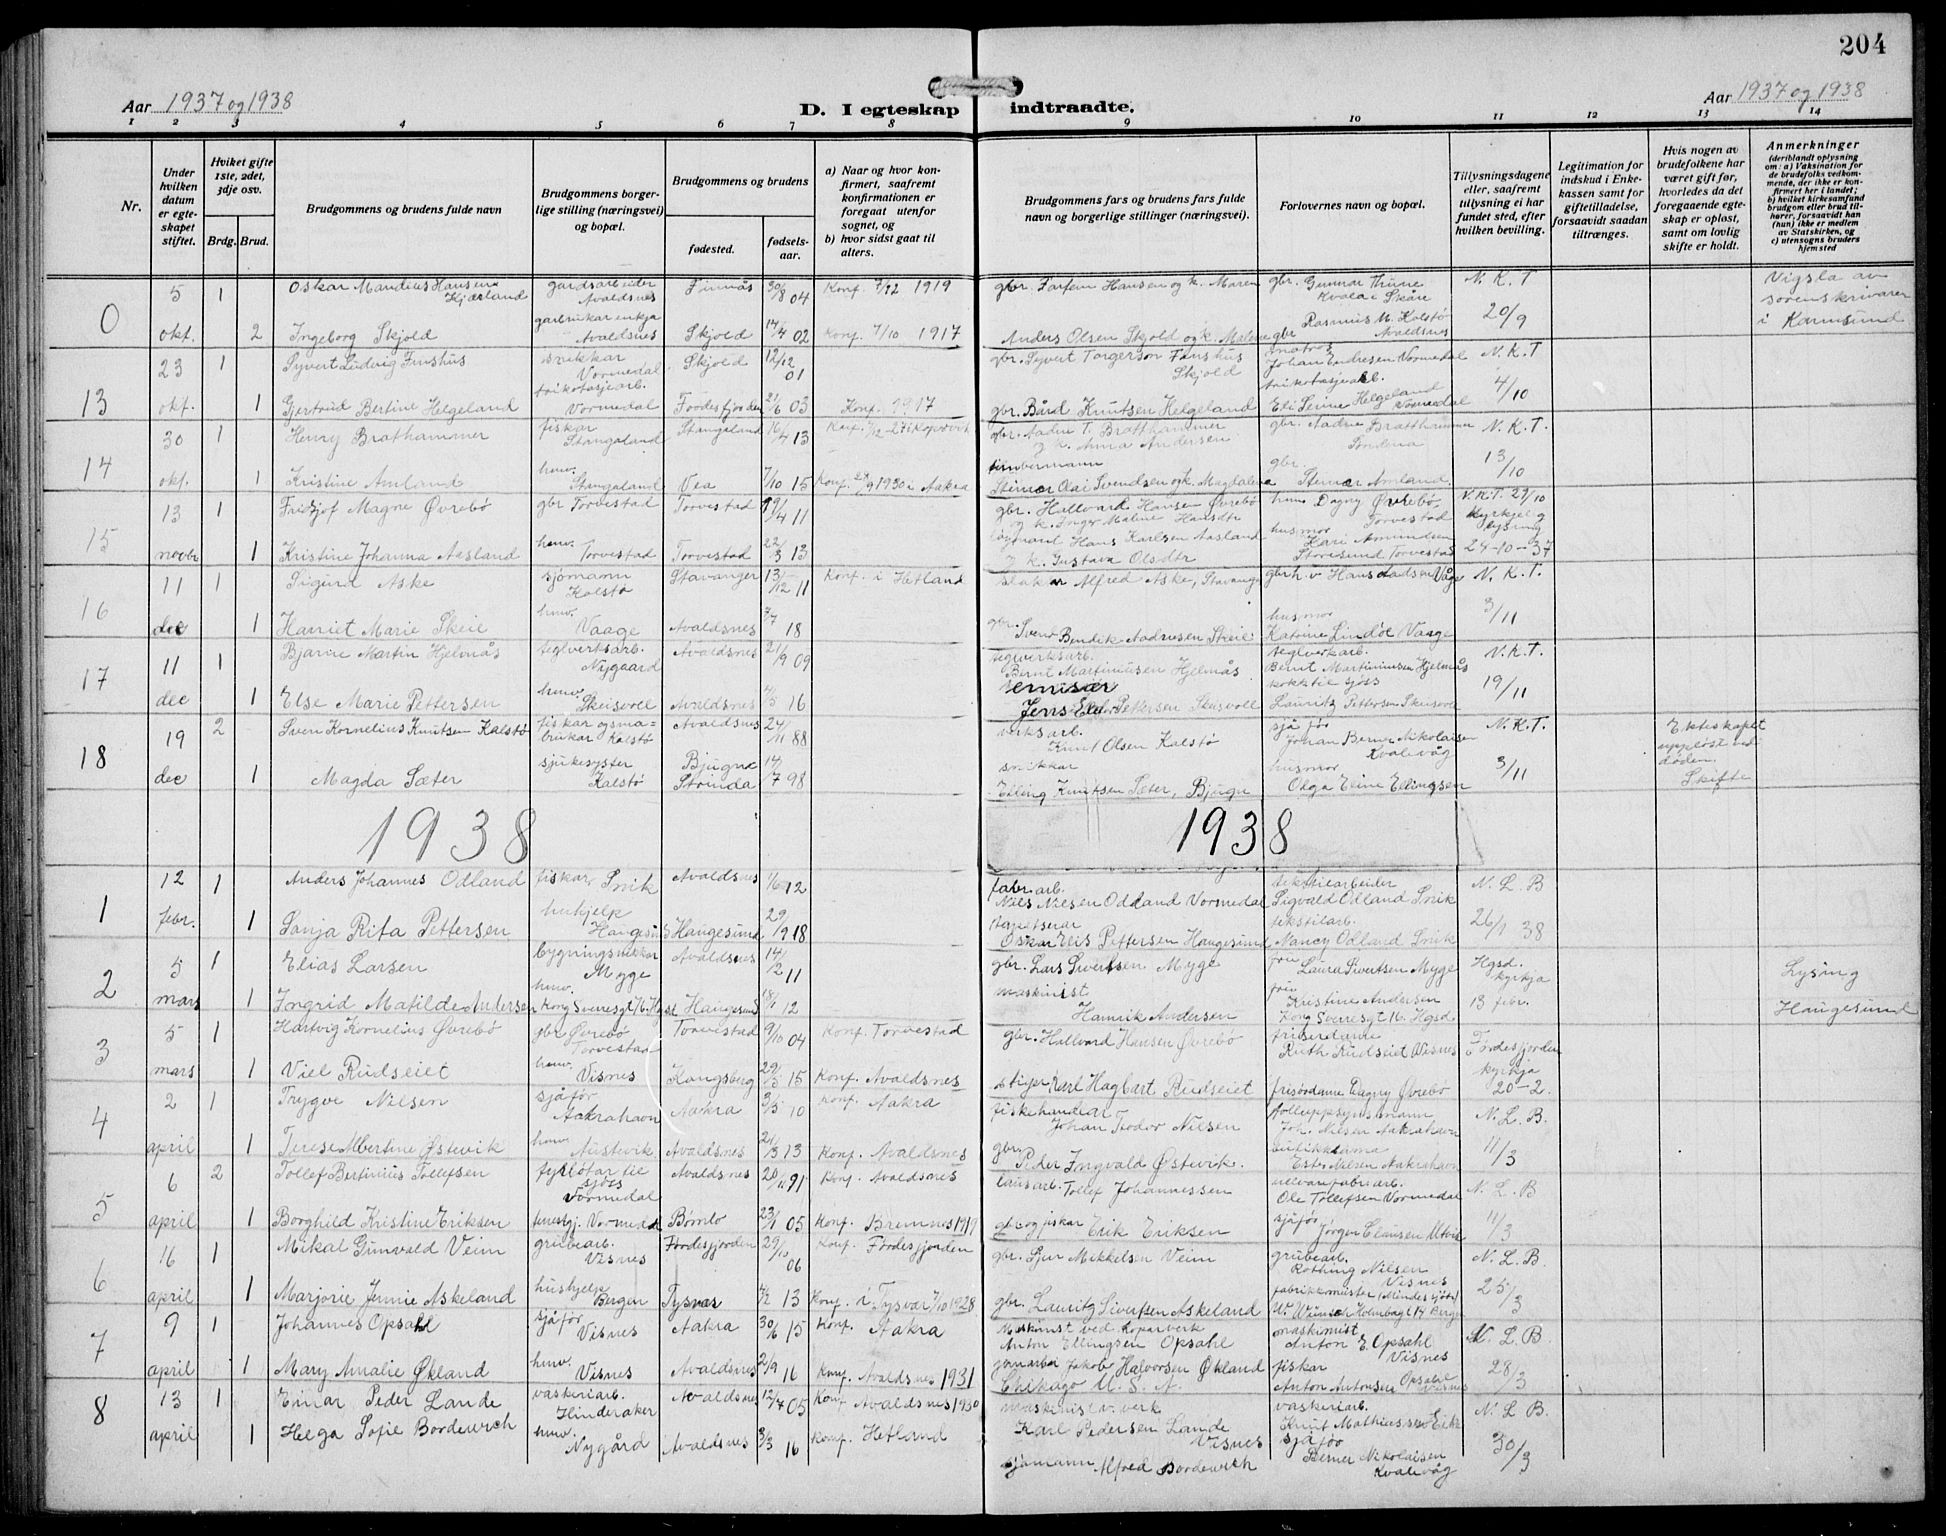 204
Aar 1937 og 1938
D. I egteskap indtraadte.
Aar 1937 og 1938
1 2 3 4 5 6 7 8 9 10 11 12 13 14
Nr.
Under hvilken datum er egteskapet stiftet.
Hviket gifte 1ste, 2det, 3dje osv.
Brdg. Brud.
Brudgommens og brudens fulde navn
Brudgommens borgerlige stilling (næringsvei) og bopæl.
Brudgommens og brudens
fødested.
fødselsaar.
a) Naar og hvor konfirmert, saafremt konfirmationen er foregaat utenfor sognet, og
b) hvor sidst gaat til alters.
Brudgommens fars og brudens fars fulde navn og borgerlige stillinger (næringsvei).
Forlovernes navn og bopæl.
Tillysningsdagene eller, saafremt tillysning ei har fundet sted, efter hvilken bevilling.
Legitimation for indskud i Enkekassen samt for giftetilladelse, forsaavidt saadan tiltrænges.
Hvis nogen av brudefolkene har været gift før, hvorledes da det foregaaende egteskap er opløst, samt om lovlig skifte er holdt.
Anmerkninger
(deriblandt oplysning om: a) Vaksination for de brudefolks vedkommende, der ikke er konfirmert her i landet; b) hvilket kirkesamfund brudgom eller brud tilhører, forsaavidt han (hun) ikke er medlem av Statskirken, og c) utensogns bruders hjemsted
0 5 okt. 1 Oskar Mandius Hansen Kjærland gardsarbeider Avaldsnes Finnås 30/8 04 Konf. 7/12 1919 gbr. Torfein Hansen og k. Maren gbr. Gunnar Thune Kvala i Skåre N. K. T 20/9 Vigsla av sorenskrivaren i Karmsund
2 Ingeborg Skjold gardbrukarenkja Avaldsnes Skjold 17/4 02 Konf. 7/10 1917 Anders Olsen Skjold og k. Malene gbr Rasmus M. Kalstø Avaldsnes
13 23 okt. 1 Syvert Ludvig Finshus snikkar Vormedal Skjold 12/12 01 gbr. Syvert Torgerson Finshus Skjold matros Johan Endresen Vormedal N. K. T 4/10
1 Gjertrud Bertine Helgeland trikotasjearb. Vormedal Fördesfjorden 21/6 03 Konf. 1917 gbr. Bård Knutsen Helgeland trikotasjearb. Eli Seine Helgeland Vormedal
14 30 okt. 1 Henry Bratthammer fiskar Stangaland Stangaland 16/4 13 Konf. 7/12-27 i Kopervik gbr. Aadne T. Bratthammer og k. Anna Andersen gbr. Aadne Bratthammer N. K. T. 13/10
1 Kristine Amland hmv. Stangaland Vea 7/10 15 Konf. 28/9 1930 i Aakra timbermann Steinar Olai Svendsen og k. Magdalena gbr Steinar Amland
15 13 novbr 1 Fridtjof Magne Øvrebø gbr Torvestad Torvestad 19/4 11 gbr. Hallvard Hansen Øvrebø og k. Inger Maline Hansdtr hmv Dagny Øvrebø Torvestad N. K. T. 29/10 Kyrkjelig lysing 24-10-37
1 Kristine Johanna Aasland hmv. Torvestad Torvestad 22/3 13 Hans Karlsen Aasland og k. Gustava Olsdtr husmor Kari Amundsen Storesund Torvestad
16 11 dec 1 Sigurd Aske sjömann Kalstø Stavanger 13/12 11 Konf. i Hetland slakar Alfred Aske, Stavanger gbrh. v Hans Våge N. K. T. 3/11
1 Harriet Marie Skeie hmv. Vaage Avaldsnes 7/7 18 gbr. Svend Bendik Aadnesen Skeie husmor Katrine Lindöe Vaage
17 11 dec 1 Bjarne Martin Hjelmås teglverksarb. Nygaard Avaldsnes 21/9 09 teglverksarb. Bernt Martinusen Hjelmås teglverkarb. Bernt Martinusen Hjelmås N. K. T. 19/11
1 Else Marie Pettersen hmv. Skeisvoll Avaldsnes 4/3 16 Jens Pettersen Skeisvoll kokk til sjöss Lauritz Pettersen Skeisvoll
18 19 dec 2 Sven Kornelius Knutsen Kalstø fiskar og småbrukar Kalstø Avaldsnes 24/11 88 verksarb. Knut Olsen Kalstø sjåfør Johan Berner Nikolaisen Kvalevåg N. K. T. 3/11 Ekteskapet uppløst ved døden. Skifte
1 Magda Sæter sjukesyster Kalstø Bjugn Strinda 14/7 98 snikkar Elling Knutsen Sæter, Bjugn husmor Olga Eline Ellingsen
1938 1938
1 12 febr. 1 Anders Johannes Odland fiskar Snik Avaldsnes 1/6 12 fabr. arb. Nils Nilsen Odland Vormedal tekstilarbeider Sigvald Odland Snik N. L. B 26/1 38
1 Sonja Rita Pettersen hushjelp Haugesund Haugesund 29/9 18 tapetserar Oskar Elis Pettersen Haugesund tekstilarb. Nancy Odland Snik
2 5 mars 1 Elias Larsen bygningssnikkar Myge Avaldsnes 14/2 11 gbr. Lars Sivertsen Myge fru Laura Sivertsen Myge Hgsd. kyrkja 13 febr. Lysing Haugesund
1 Ingrid Matilde Andersen hmv. Kong Sverresgt 16. Hgsd Haugesund 18/1 12 maskinist Henrik Andersen fru Kristine Andersen Kong Sverresgt 16. Hgsd.
3 5 mars 1 Hartvig Kornelius Øvrebö gbr Øvrebö Torvestad Torvestad 9/10 04 Konf. Torvestad gbr. Hallvard Hansen Øvrebö friserdame Ruth Rudseiet Visnes Fördesfjorden kyrkja 20-2.
1 Viel Rudseiet hmv. Visnes Kongsberg 29/5 15 Konf. Avaldsnes stiger Karl Hagbart Rudseiet frisördame Dagny Øvrebö
4 2 april 1 Trygve Nilsen sjåfør Aakrahavn Aakra 3/5 10 Konf. Aakra fiskehandlar Johan Teodor Nilsen tolluppsynsmann Joh. Nilsen Aakrahavn N. L. B. 11/3
1 Terese Albertine Østevik hmv. Austevik Avaldsnes 21/3 13 Konf. Avaldsnes gbr Peder Ingvald Østevik. butikkdama Ester Nilsen Aakrahavn
5 6 april 2 Tollef Bertinius Tollefsen fyrböter til sjöss Vormedal Avaldsnes 20/11 91 Konf. Avaldsnes lausarb. Tollef Johannessen Ole Tollefsen Vormedal N. L. B 11/3
1 Borghild Kristine Eriksen Vormedal Bömlo 23/1 05 Konf. Bremnes 1919 gbr og fiskar Erik Eriksen sjåfør Jørgen Clausen Utvik
6 16 april 1 Mikal Gunvald Veim grubearb. Visnes Fördesfjorden 29/10 06 Konf. Fördesfjorden gbr. Sjur Mikkelsen Veim grubearb. Rothing Nilsen Visnes N. L. B. 25/3
1 Marjorie Jennie Askeland hushjelp Bergen Tysvær 4/2 13 Konf. i Tysvær 7/10 1928 gbr. Lauritz Sivertsen Askeland fabrikkmester (Mindes sjöts) Holmbogt 14 Bergen
7 9 april 1 Johannes Opsahl sjåfør Visnes Aakra 30/6 15 Konf. Aakra Maskinist ved Koparverk Anton Ellingsen Opsahl maskinist Anton E. Opsahl Visnes N. L. B. 28/3
1 Mary Amalie Økland hmv. Visnes Avaldsnes 2/9 16 Konf. Avaldsnes 1931 jernarbe Jakob Halvorsen Økland Chikago U. S. A. fiskar Anton Antonsen Opsahl Visnes
8 13 april 1 Einar Peder Lande vaskeriarb. Hinderaker Avaldsnes 12/7 05 Konf. Avaldsnes 1930 maskinist v. verk Karl Pedersen Lande Visnes vaskeriarb. Knut Mathiassen Eike N. L. B. 30/3
1 Helga Sofie Bordewich hmv. Nygård Avaldsnes 3/3 16 Konf. Hetland sjømann Alfred Bordewich sjåfør Berner Nikolaisen Kvalevåg